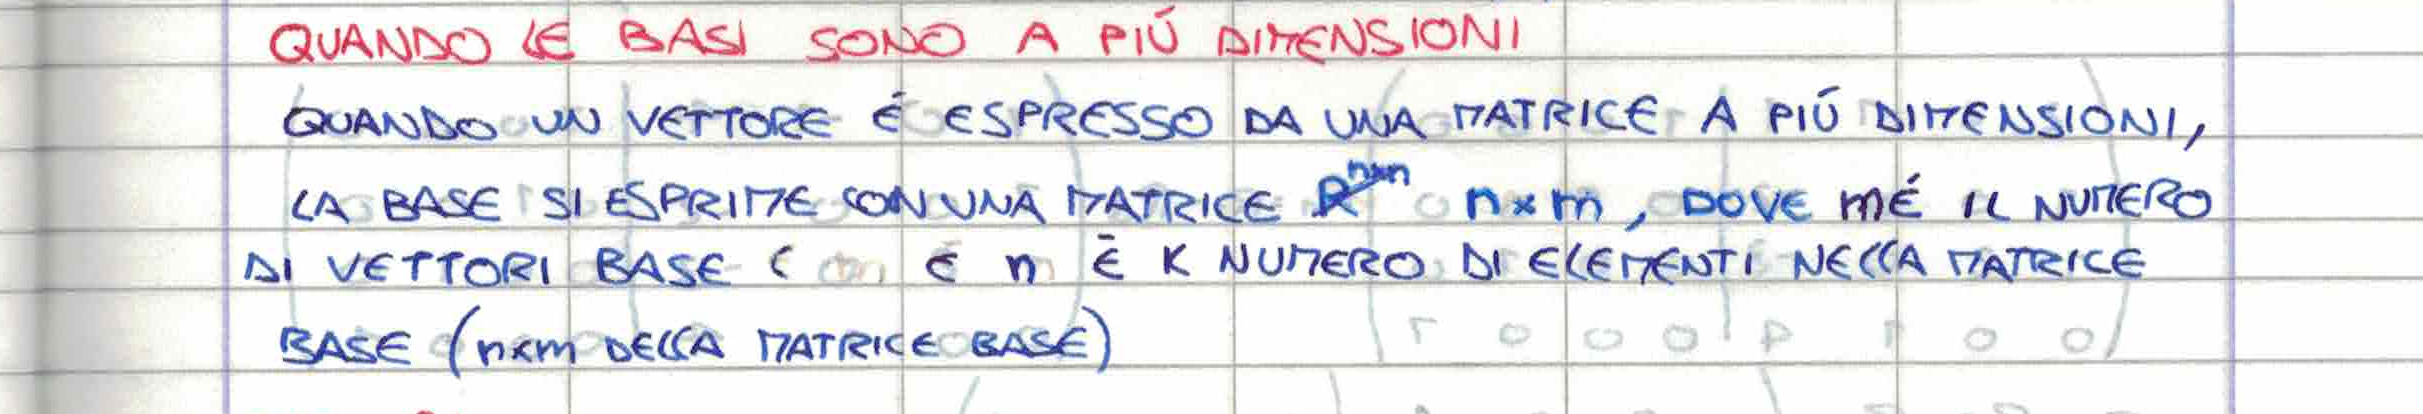 QUANDO LE BASI SONO A PIÚ DIMENSIONI
QUANDO UN VETTORE É ESPRESSO DA UNA MATRICE A PIÚ DIMENSIONI,
LA BASE SI ESPRIME CON UNA MATRICE n×m, DOVE m É IL NUMERO
DI VETTORI BASE ( E n È IL NUMERO DI ELEMENTI NELLA MATRICE
BASE (n×m DELLA MATRICE BASE)